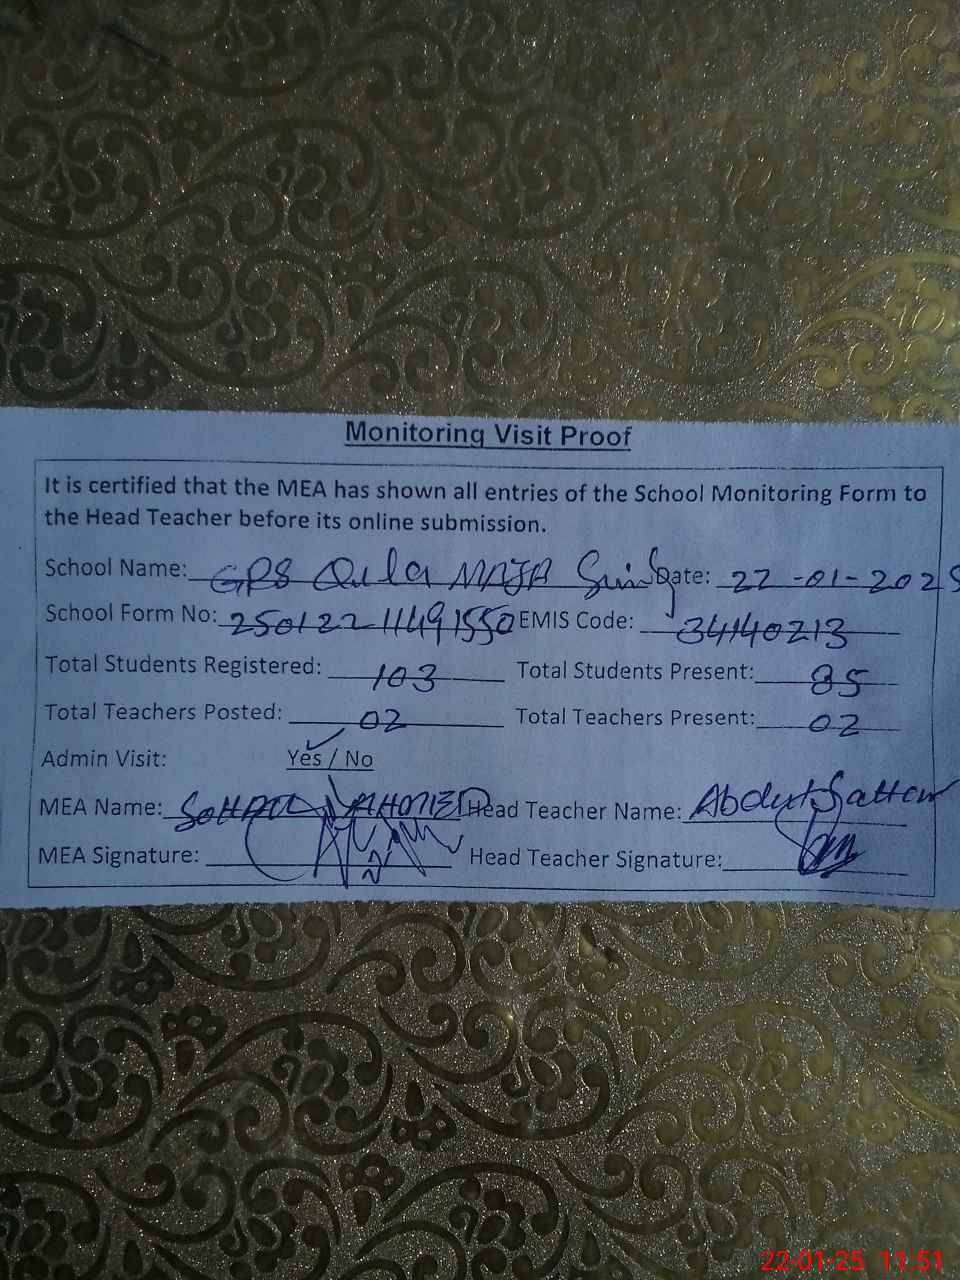 Monitoring Visit Proof
It is certified that the MEA has shown all entries of the School Monitoring Form to
the Head Teacher before its online submission.
School Name: GPS Qila MAJA Sing Date: 22-01-2025
School Form No: 250122 11491550 EMIS Code: 34140213
Total Students Registered: 103 Total Students Present: 85
Total Teachers Posted: 02 Total Teachers Present: 02
Admin Visit: Yes / No
MEA Name: Head Teacher Name: Abdul Sattar
MEA Signature: Head Teacher Signature:
22-01-25 11:51